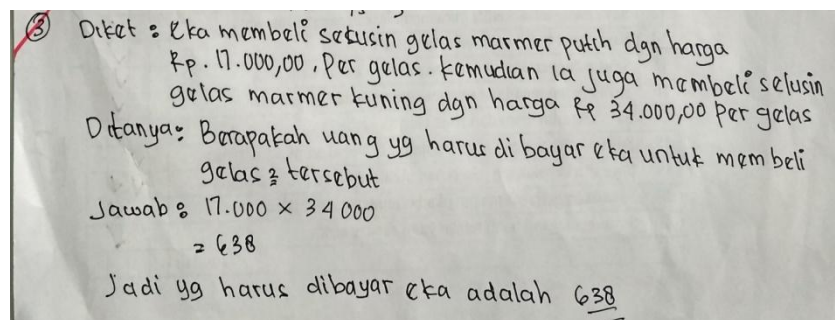 ③ Diket : Eka membeli selusin gelas marmer putih dgn harga
Rp. 17.000,00. Per gelas. kemudian ia juga membeli selusin
gelas marmer kuning dgn harga Rp 34.000,00 Per gelas
Ditanya : Berapakah uang yg harus di bayar eka untuk membeli
gelas 2 tersebut
Jawab : 17.000 × 34 000
= 638
Jadi yg harus dibayar eka adalah 638